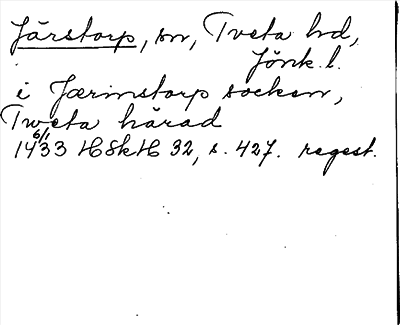 Järstorp, sn, Tveta hd,
Jönk. l.
i Jærmstorp socken,
Tweta härad
6/1
1433 HSkH 32, s. 427. regest.